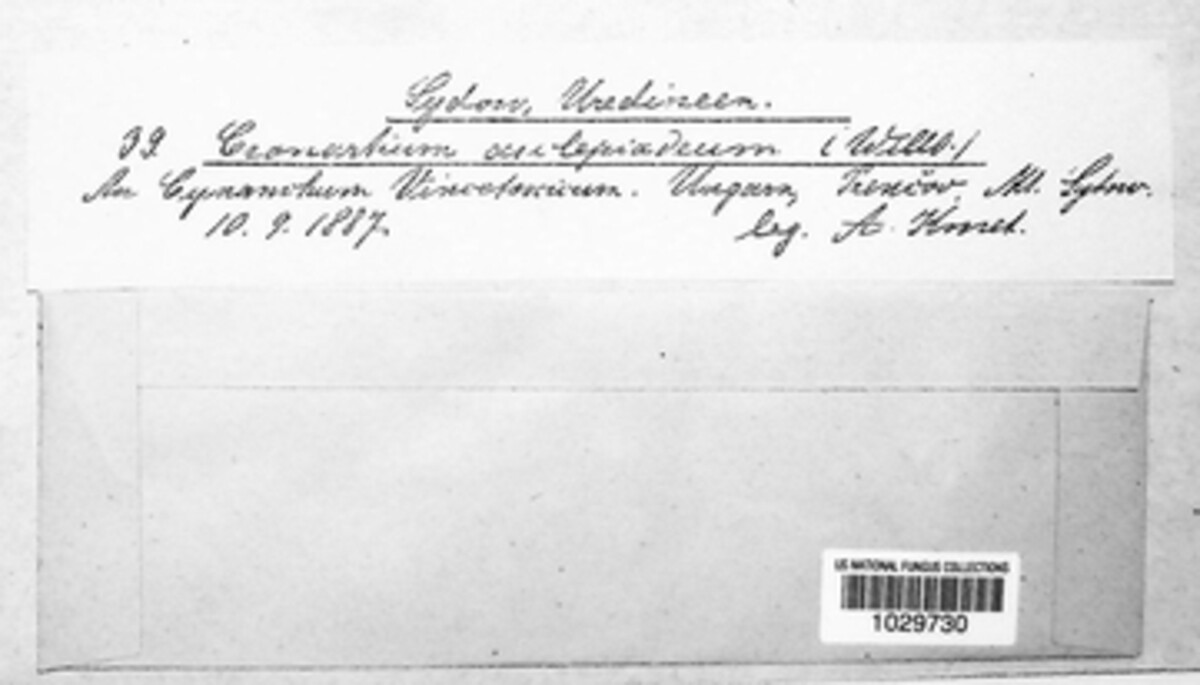 Sydow, Uredineen.
39. Cronartium asclepiadeum (Willd.)
An Cynanchum Vincetoxicum. Ungarn, Trenčov, Sydow.
10. 9. 1887. leg. A. Kmet.
US NATIONAL FUNGUS COLLECTIONS
1029730